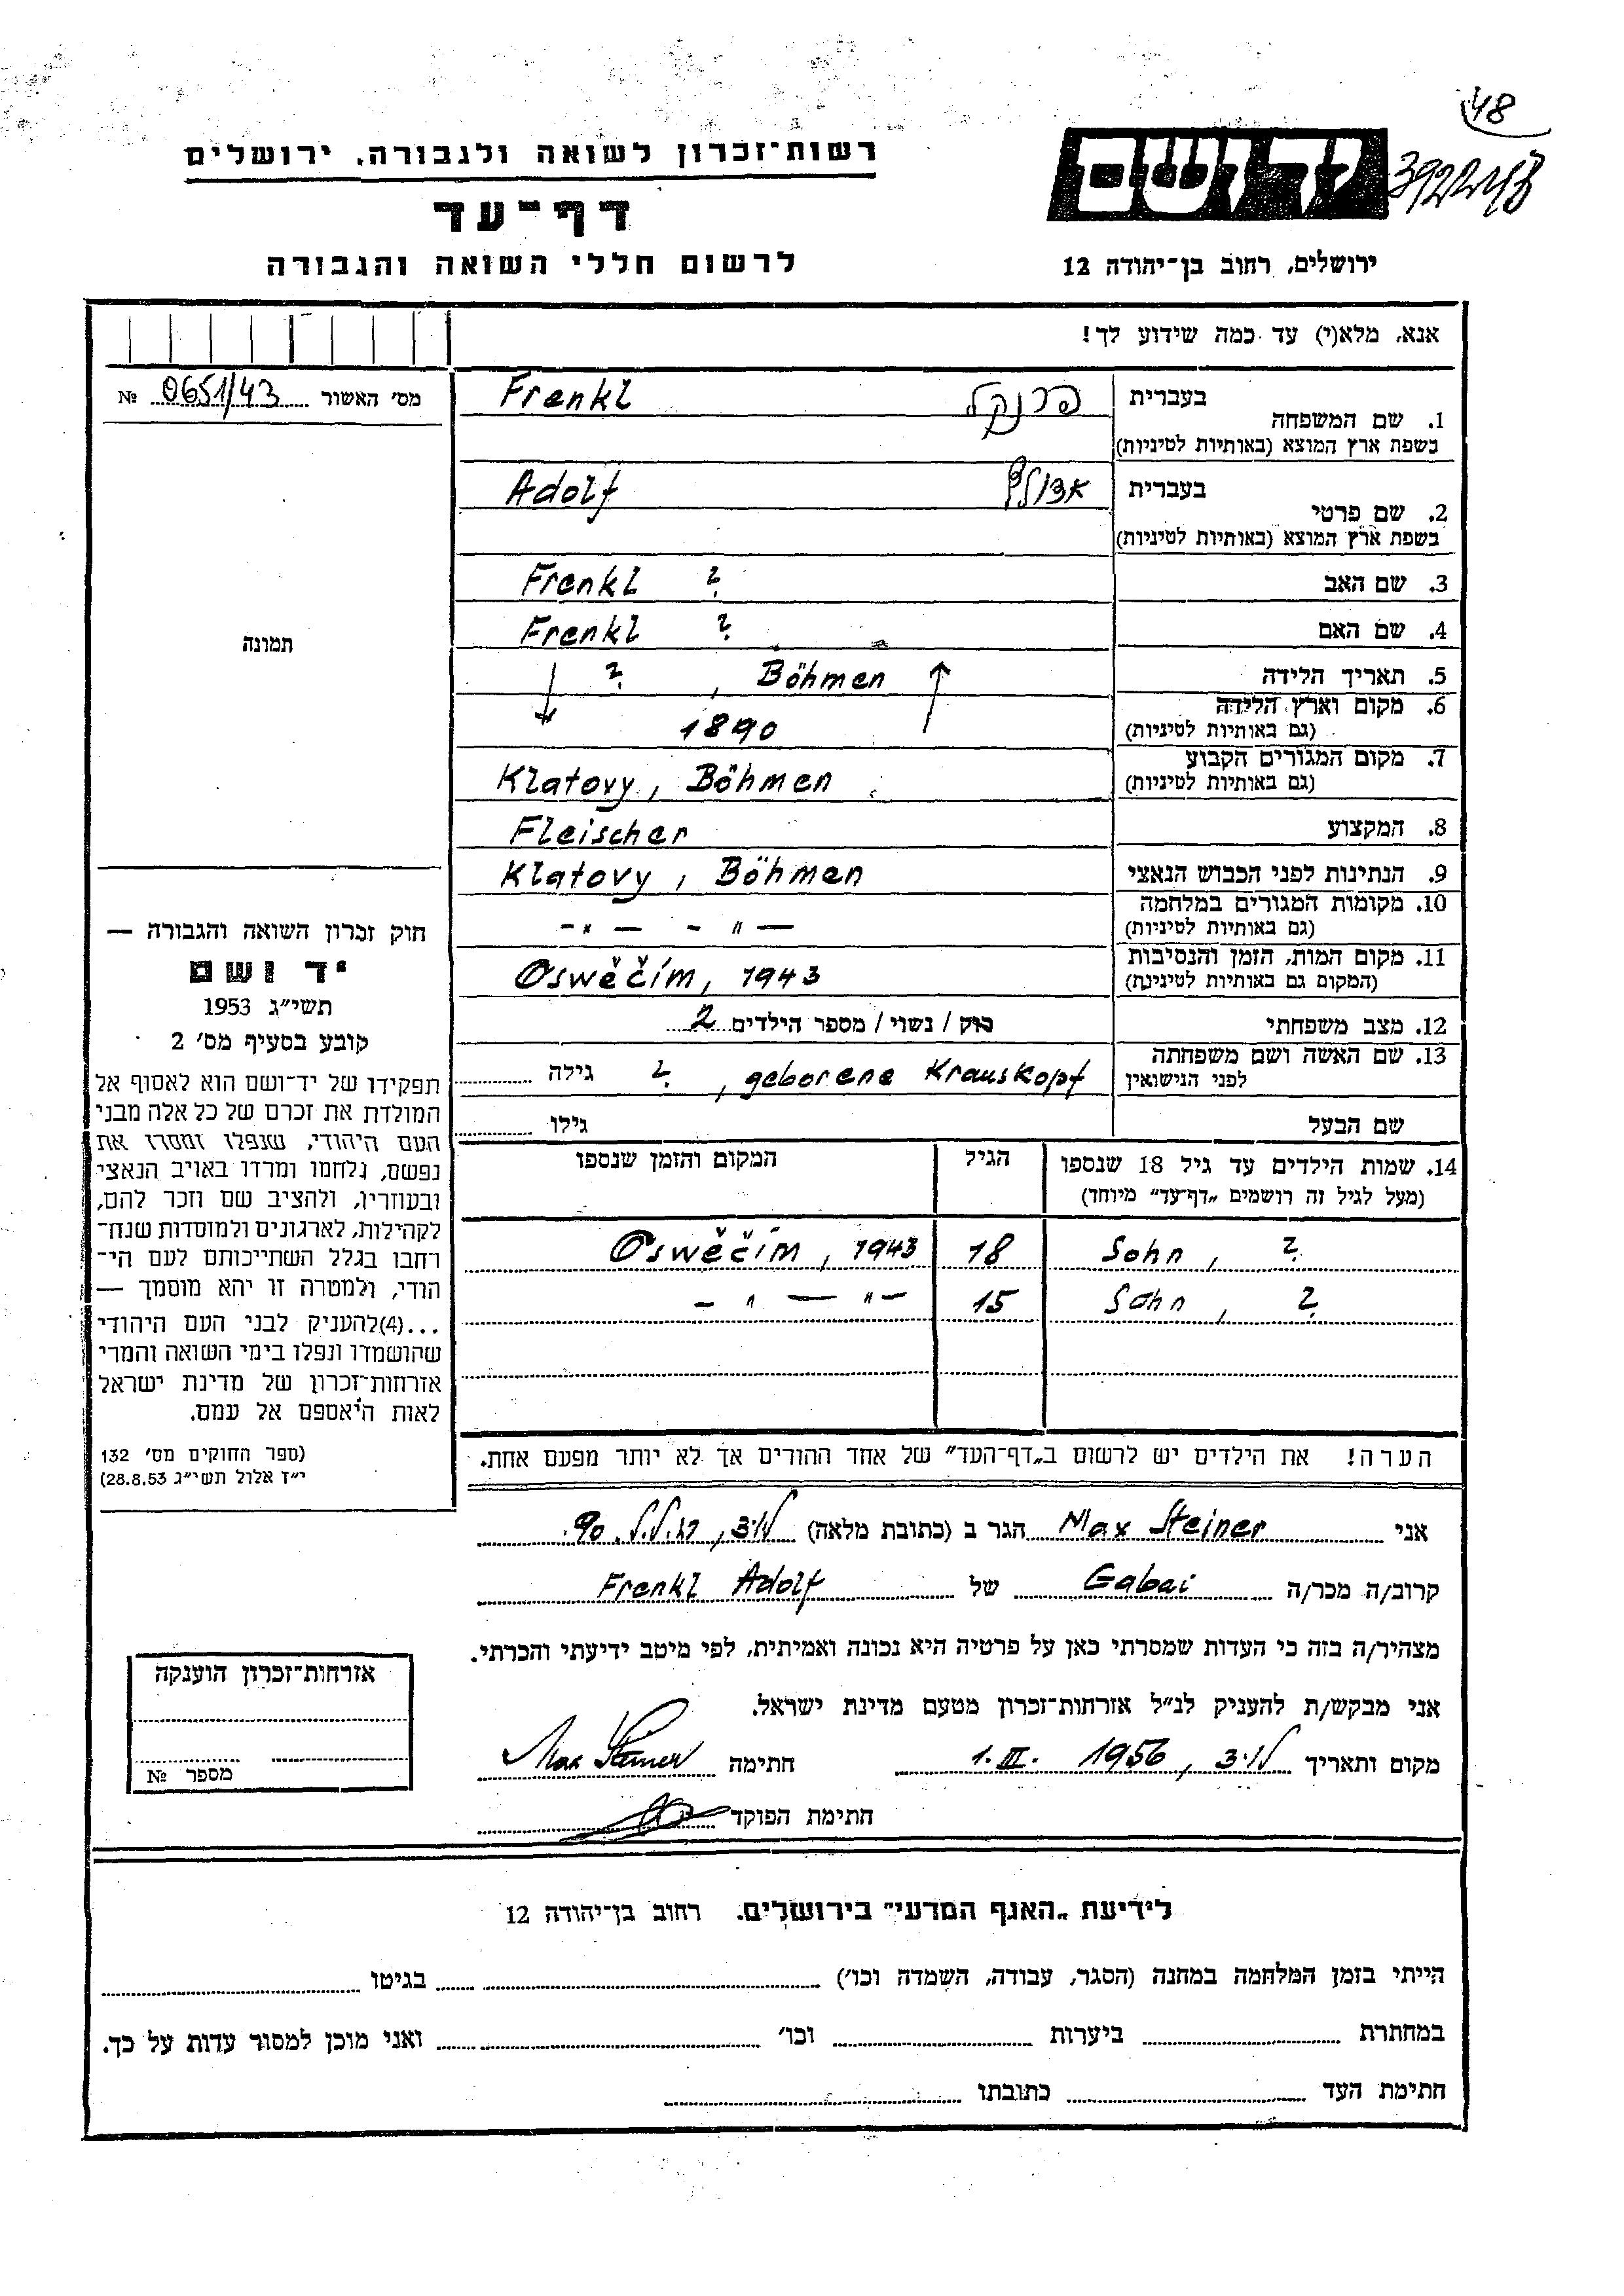 48
392248
יד ושם
רשות־זכרון לשואה ולגבורה, ירושלים
דף־עד
לרשום חללי השואה והגבורה
ירושלים, רחוב בן־יהודה 12
אנא, מלא(י) עד כמה שידוע לך!
מס' האשור 0651/43 №
1. שם המשפחה בעברית פרנקל Frenkl
בשפת ארץ המוצא (באותיות לטיניות)
2. שם פרטי בעברית אדולף Adolf
בשפת ארץ המוצא (באותיות לטיניות)
3. שם האב Frenkl ?
4. שם האם Frenkl ?
5. תאריך הלידה ? , Böhmen
6. מקום וארץ הלידה 1890
(גם באותיות לטיניות)
7. מקום המגורים הקבוע Klatovy, Böhmen
(גם באותיות לטיניות)
8. המקצוע Fleischer
9. הנתינות לפני הכבוש הנאצי Klatovy, Böhmen
10. מקומות המגורים במלחמה - " - - " -
(גם באותיות לטיניות)
11. מקום המות, הזמן והנסיבות Oswěčím, 1943
(המקום גם באותיות לטיניות)
12. מצב משפחתי רוק / נשוי / מספר הילדים 2
13. שם האשה ושם משפחתה ? , geborene Krauskopf גילה
לפני הנישואין
שם הבעל גילו
14. שמות הילדים עד גיל 18 שנספו הגיל המקום והזמן שנספו
(מעל לגיל זה רושמים „דף־עד” מיוחד)
Sohn, ? 18 Oswěčím, 1943
Sohn, ? 15 - " - " -
הערה! את הילדים יש לרשום ב„דף־העד” של אחד ההורים אך לא יותר מפעם אחת.
תמונה
חוק זכרון השואה והגבורה —
יד ושם
תשי״ג 1953
קובע בסעיף מס' 2
תפקידו של יד־ושם הוא לאסוף אל
המולדת את זכרם של כל אלה מבני
העם היהודי, שנפלו ומסרו את
נפשם, נלחמו ומרדו באויב הנאצי
ובעוזריו, ולהציב שם וזכר להם,
לקהילות, לארגונים ולמוסדות שנח־
רבו בגלל השתייכותם לעם הי־
הודי, ולמטרה זו יהא מוסמך —
...(4)להעניק לבני העם היהודי
שהושמדו ונפלו בימי השואה והמרי
אזרחות־זכרון של מדינת ישראל
לאות היאספם אל עמם.
(ספר החוקים מס' 132
י״ז אלול תשי״ג 28.8.53)
אני Max Steiner הגר ב (כתובת מלאה) 90
קרוב/ה מכר/ה Gabai של Frenkl Adolf
מצהיר/ה בזה כי העדות שמסרתי כאן על פרטיה היא נכונה ואמיתית, לפי מיטב ידיעתי והכרתי.
אני מבקש/ת להעניק לנ״ל אזרחות־זכרון מטעם מדינת ישראל.
מקום ותאריך 1. III. 1956 חתימה Max Steiner
חתימת הפוקד
אזרחות־זכרון הוענקה
מספר №
לידיעת „האגף המדעי” בירושלים. רחוב בן־יהודה 12
הייתי בזמן המלחמה במחנה (הסגר, עבודה, השמדה וכו') בגיטו
במחתרת ביערות וכו' ואני מוכן למסור עדות על כך.
חתימת העד כתובתו